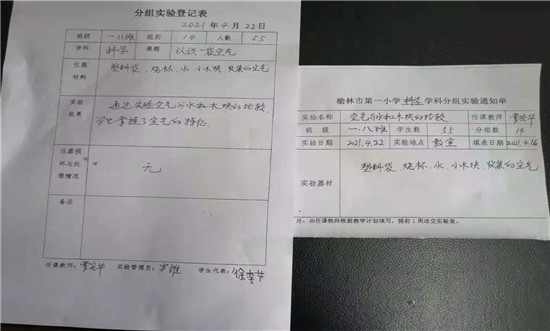 分组实验登记表
2021 年 4 月 22 日
班级 一.八班 组别 14 人数 55
学科 科学 课题 认识一袋空气
仪器材料 塑料袋、烧杯、水、小木块、收集的空气
实验效果 通过实验空气与水和木块的比较
学生掌握了空气的特征
仪器损坏与处理情况 无
备注
任课教师: 实验管理员: 学生代表:
榆林市第一小学 科学 学科分组实验通知单
实验名称 空气与水和木块的比较 任课教师
班级 一.八班 学生数 55 分组数 14
实验日期 2021.4.22 实验地点 教室 填表日期 2021.4.16
实验器材 塑料袋、烧杯、水、小木块、收集的空气
注:由任课教师根据教学计划填写,提前1周送交实验室。